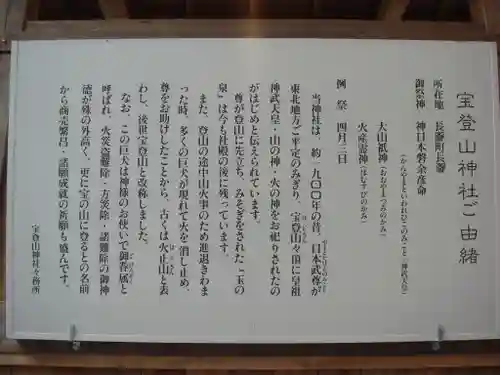 宝登山神社ご由緒
所在地 長瀞町長瀞
御祭神 神日本磐余彦命
(かんやまといわれひこのみこと・神武天皇)
大山祇神(おおやまつみのかみ)
火産霊神(ほむすびのかみ)
例祭 四月三日
当神社は、約一九〇〇年の昔、日本武尊が
東北地方ご平定のみぎり、宝登山々頂に皇祖
神武天皇・山の神・火の神をお祀りされたの
がはじめと伝えられています。
尊が登山に先立ち、みそぎをされた『玉の
泉』は今も社殿の後に残っています。
また、登山の途中山火事のため進退きわま
った時、多くの巨犬が現れて火を消し止め、
尊をお助けしたことから、古くは火止山と表
わし、後世宝登山と改称しました。
なお、この巨犬は神様のお使いで御眷属と
呼ばれ、火災盗難除・方災除・諸難除の御神
徳が殊の外高く、更に宝の山に登るとの名前
から商売繁昌・諸願成就の祈願も盛んです。
宝登山神社々務所